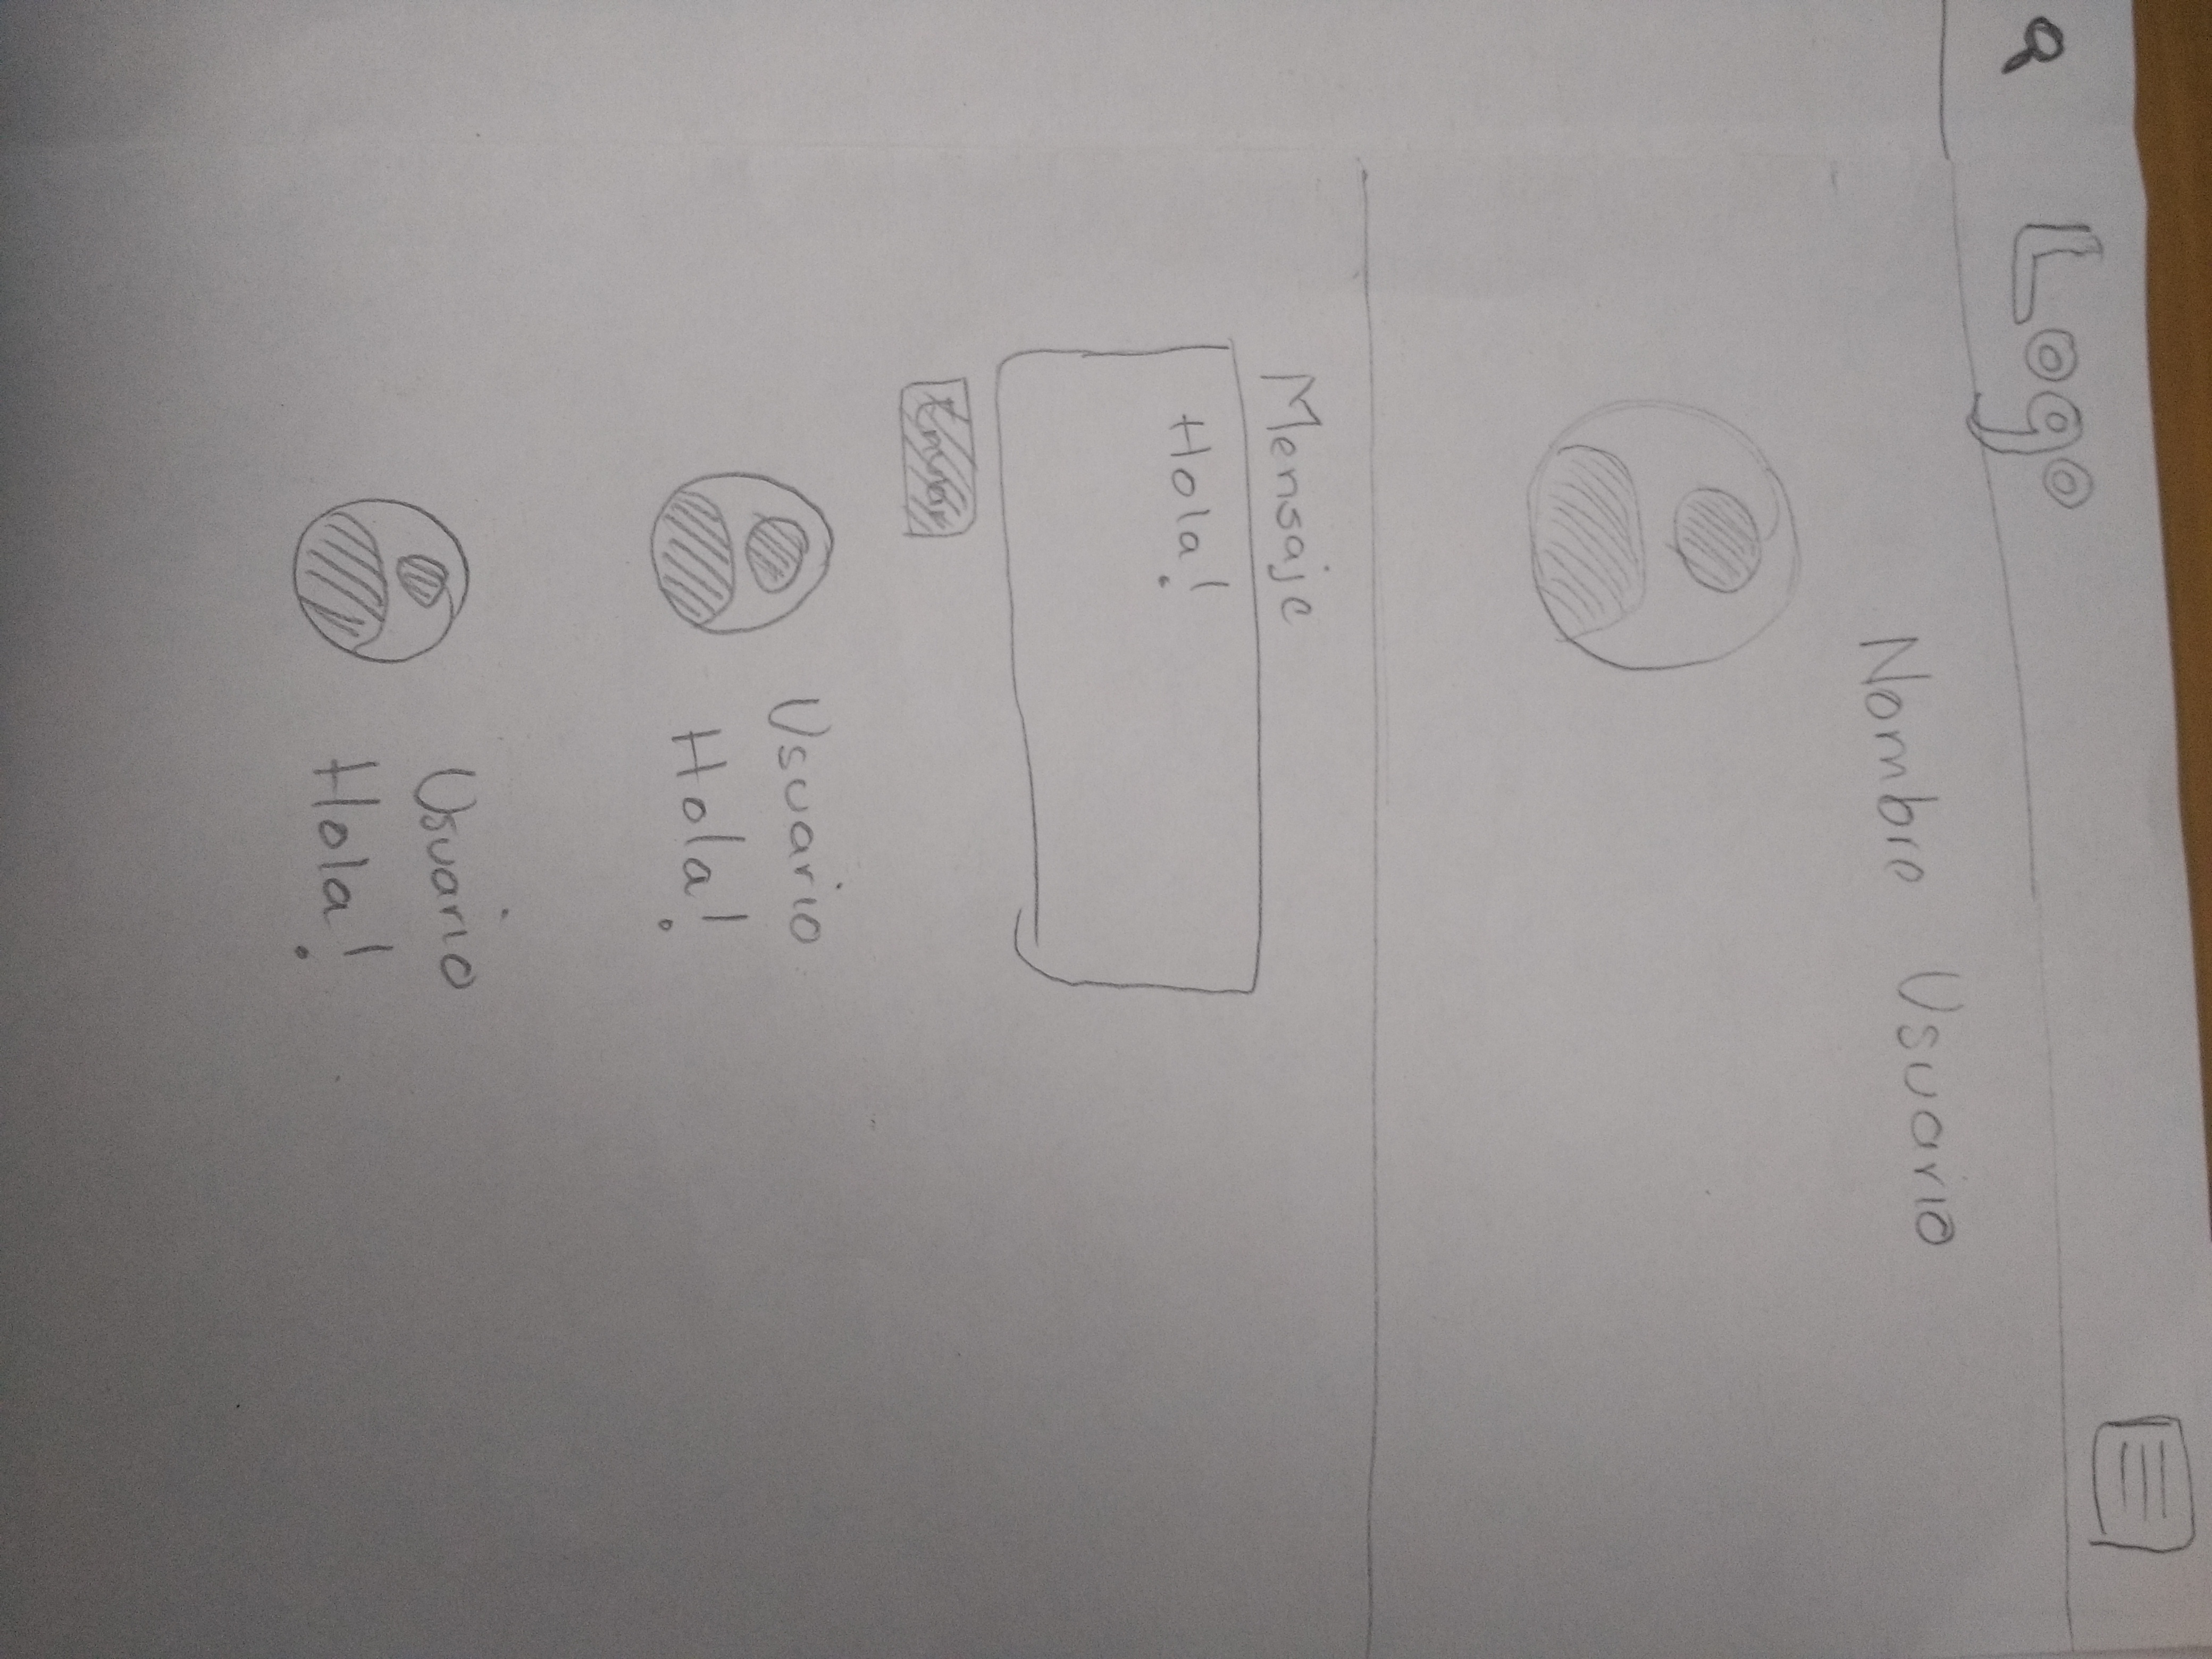 Logo
Nombre Usuario
Mensaje
Hola!
Enviar
Usuario
Hola!
Usuario
Hola!